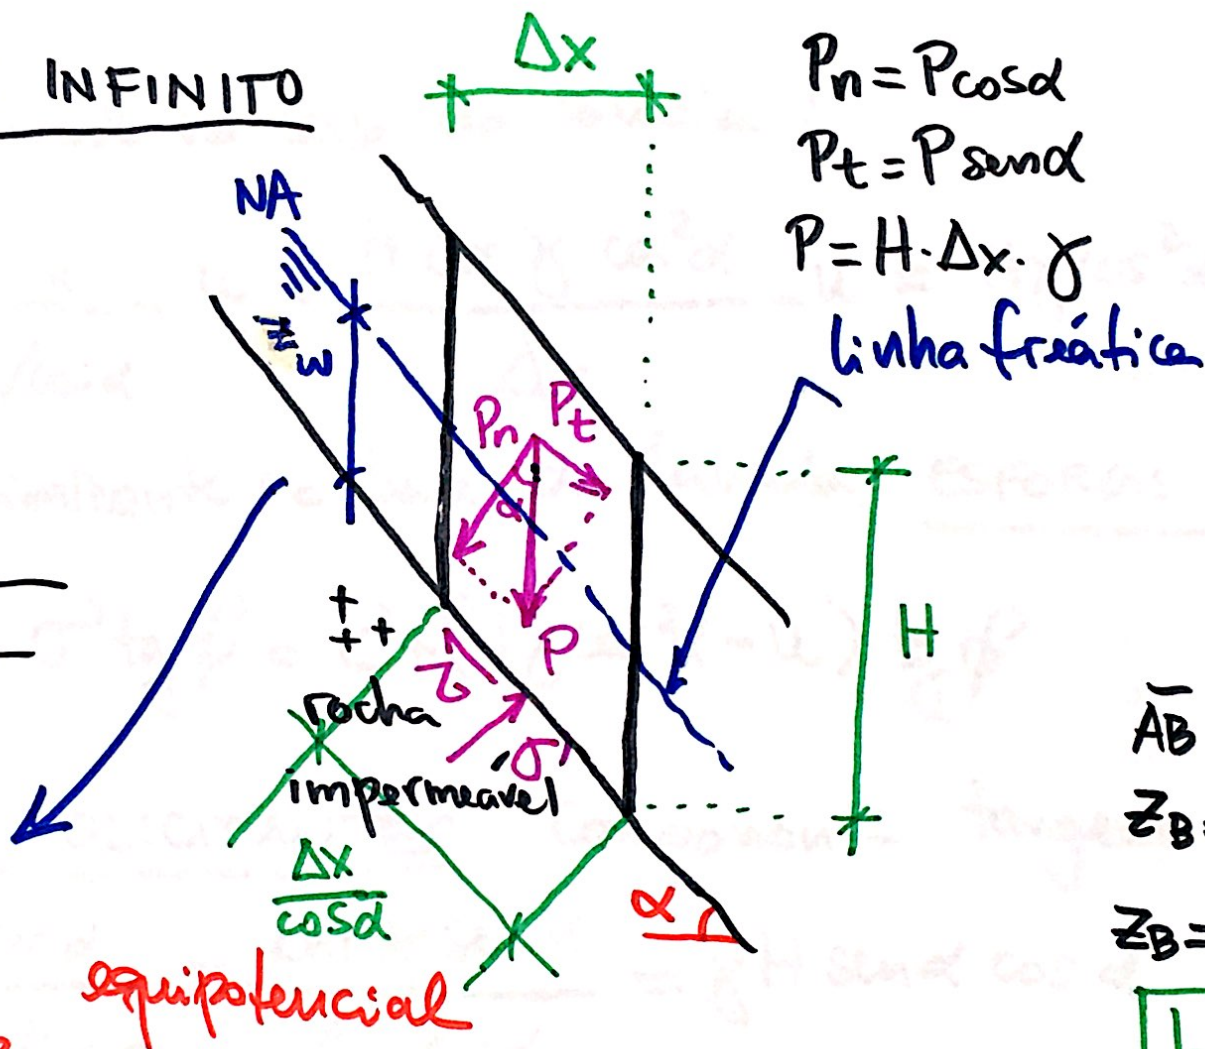 INFINITO
Δx
Pn = P cosα
Pt = P senα
P = H·Δx·γ
linha freática
NA
Zw
Pn
Pt
α
P
H
τ
σ'
rocha
impermeável
Δx
cosα
α
equipotencial
AB
ZB=
ZB=